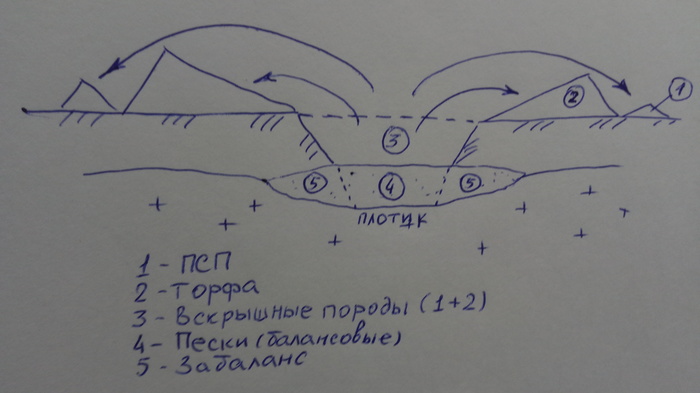 1
2
3
5
4
5
плотик
1 - ПСП
2 - Торфа
3 - Вскрышные породы (1+2)
4 - Пески (балансовые)
5 - Забаланс